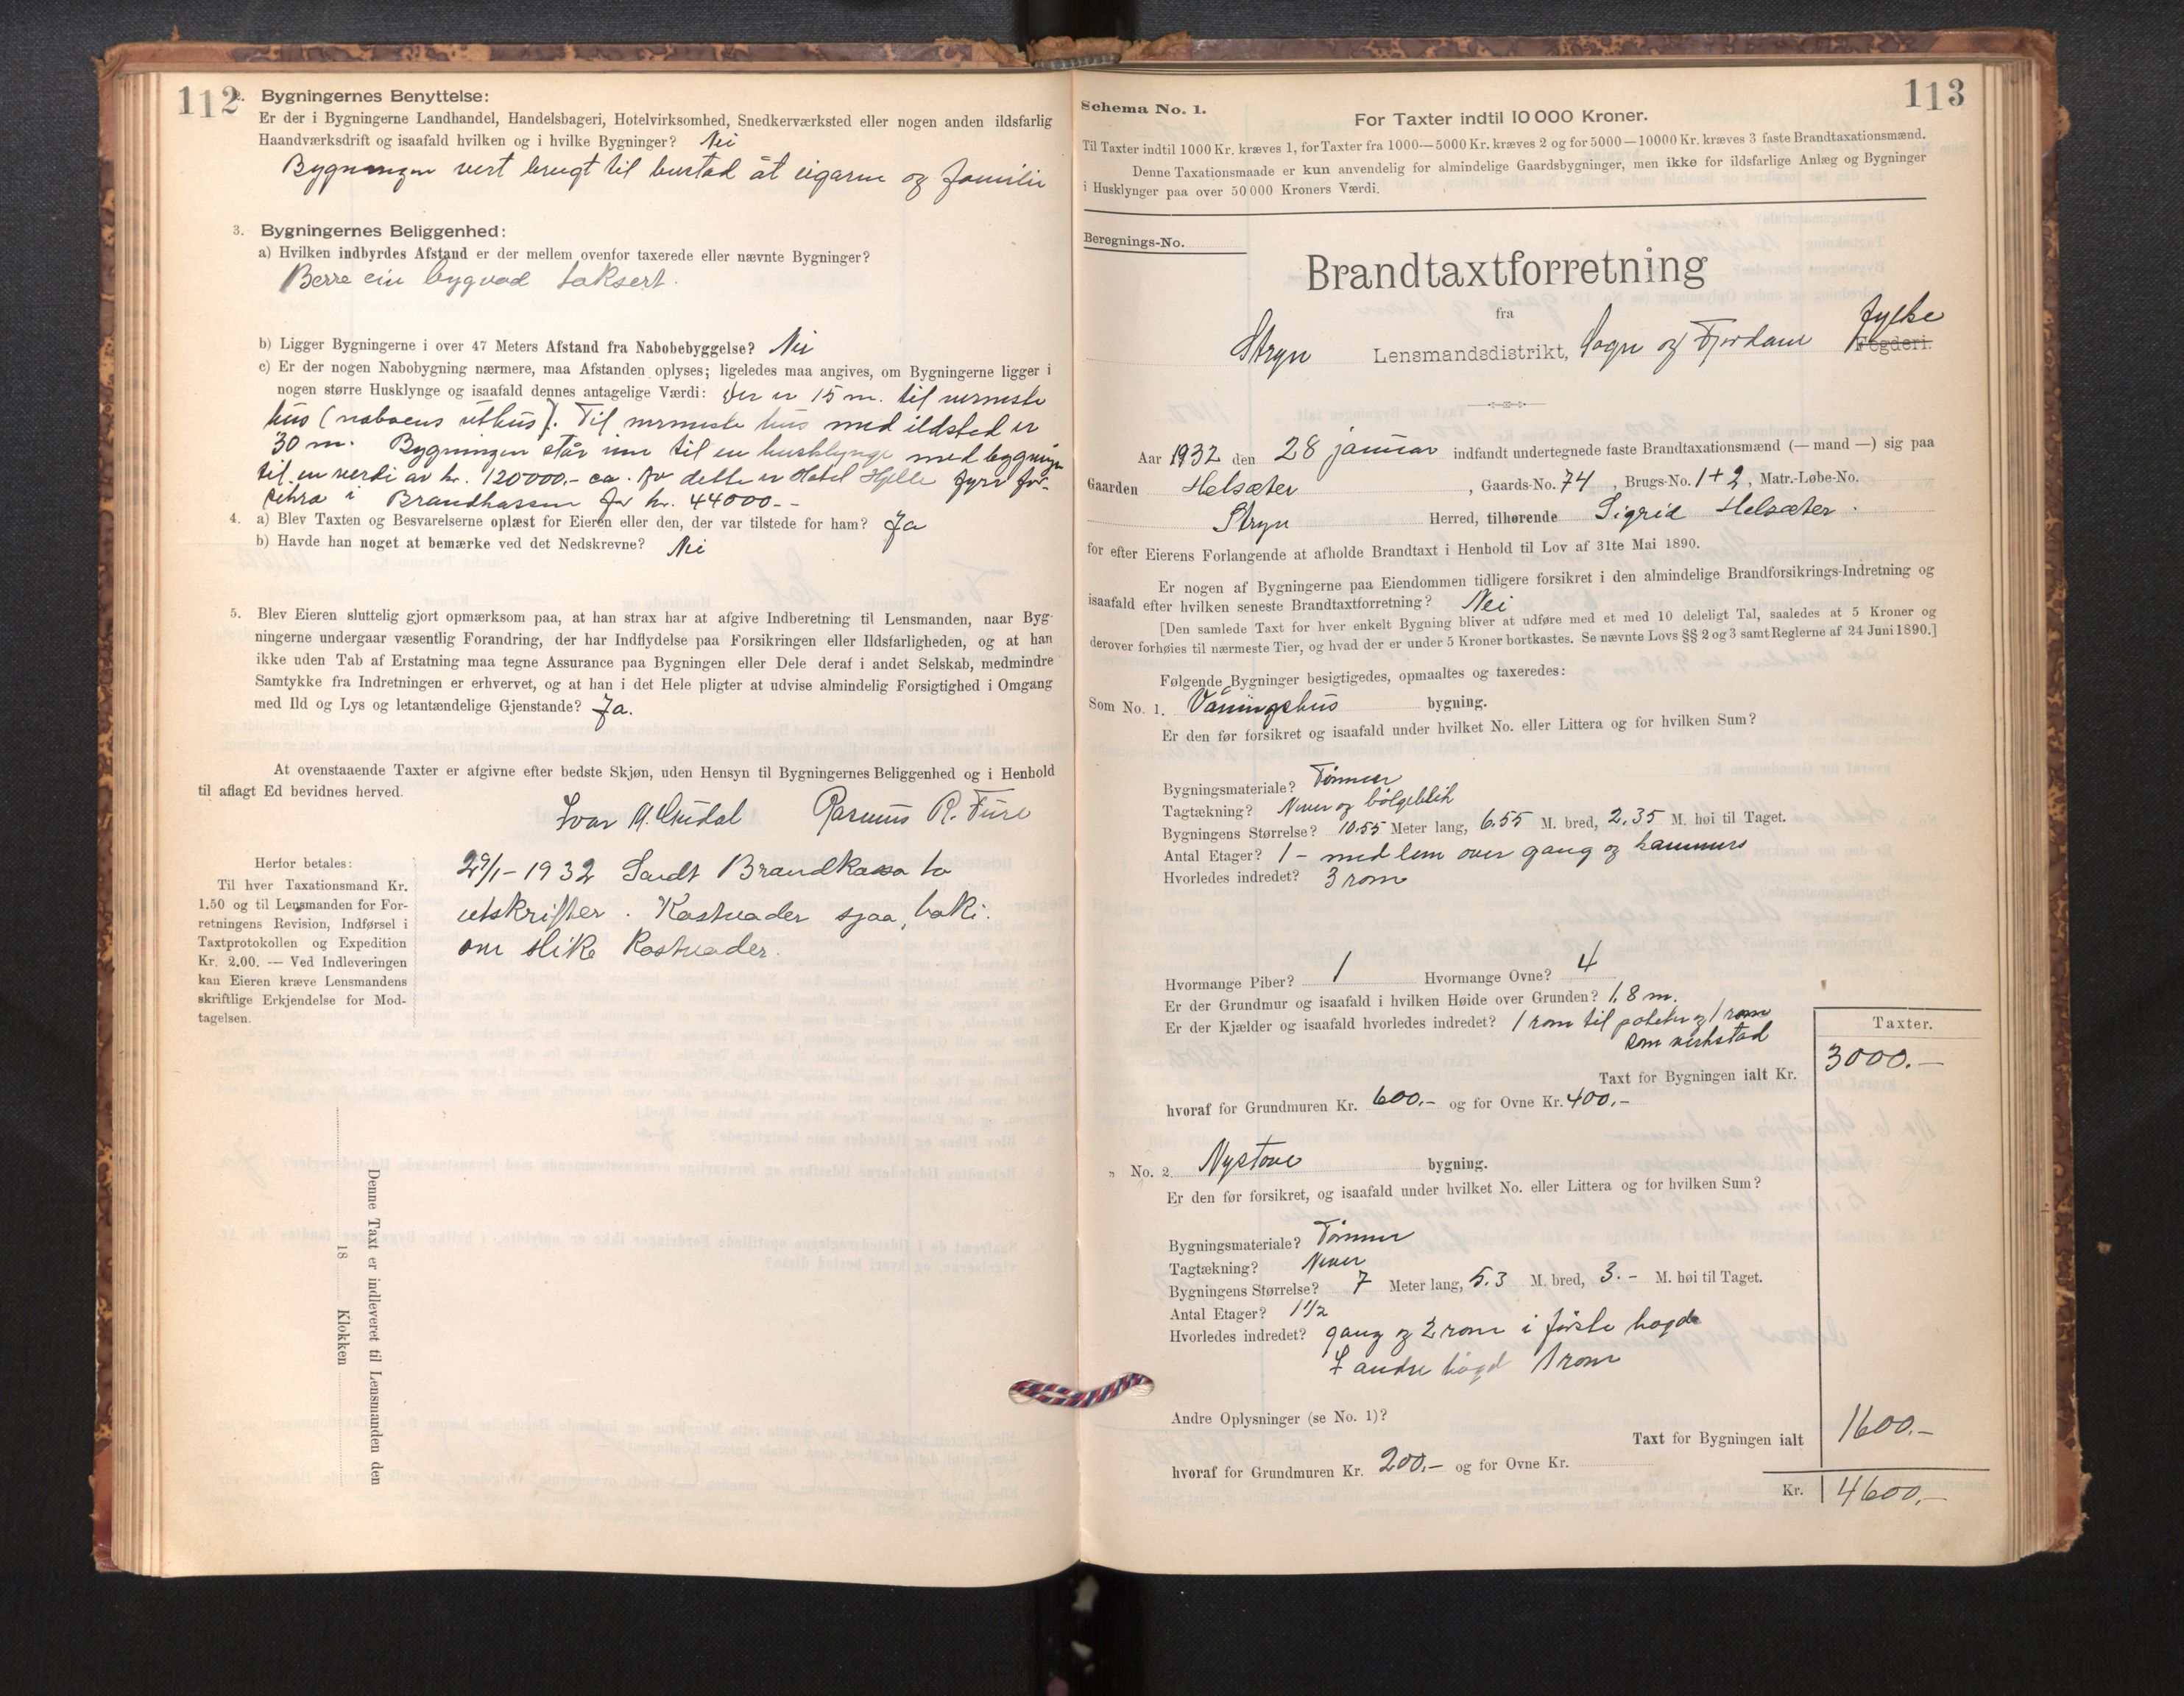 112
2. Bygningernes Benyttelse:
Er der i Bygningerne Landhandel, Handelsbageri, Hotelvirksomhed, Snedkerværksted eller nogen anden ildsfarlig
Haandværksdrift og isaafald hvilken og i hvilke Bygninger? Nei
Bygningen vert brugt til bustad åt eigarne og familie
3. Bygningernes Beliggenhed:
a) Hvilken indbyrdes Afstand er der mellem ovenfor taxerede eller nævnte Bygninger?
Berre ein bygnad taksert.
b) Ligger Bygningerne i over 47 Meters Afstand fra Nabobebyggelse? Nei
c) Er der nogen Nabobygning nærmere, maa Afstanden oplyses; ligeledes maa angives, om Bygningerne ligger i
nogen større Husklynge og isaafald dennes antagelige Værdi: Der er 15 m. til nærmeste
hus (naboens uthus). Til nærmeste hus med ildsted er
30 m. Bygningen står inn til en husklynge med bygninger
til en verdi av kr. 120000.- ca. Av dette er Hotel Hjelle fyrr for-
sikra i Brandkassen for kr. 44000.-
4. a) Blev Taxten og Besvarelserne oplæst for Eieren eller den, der var tilstede for ham? Ja
b) Havde han noget at bemærke ved det Nedskrevne? Nei
5. Blev Eieren sluttelig gjort opmærksom paa, at han strax har at afgive Indberetning til Lensmanden, naar Byg-
ningerne undergaar væsentlig Forandring, der har Indflydelse paa Forsikringen eller Ildsfarligheden, og at han
ikke uden Tab af Erstatning maa tegne Assurance paa Bygningen eller Dele deraf i andet Selskab, medmindre
Samtykke fra Indretningen er erhvervet, og at han i det Hele pligter at udvise almindelig Forsigtighed i Omgang
med Ild og Lys og letantændelige Gjenstande? Ja.
At ovenstaaende Taxter er afgivne efter bedste Skjøn, uden Hensyn til Bygningernes Beliggenhed og i Henhold
til aflagt Ed bevidnes herved.
Ivar Rasmus R. Fure
29/1-1932 Sendt Brandkassa to
utskrifter. Kostnader sjaa, baki.
om slike Kostnader.
Herfor betales:
Til hver Taxationsmand Kr.
1.50 og til Lensmanden for For-
retningens Revision, Indførsel i
Taxtprotokollen og Expedition
Kr. 2.00. — Ved Indleveringen
kan Eieren kræve Lensmandens
skriftlige Erkjendelse for Mod-
tagelsen.
Denne Taxt er indleveret til Lensmanden den
18 Klokken
113
Schema No. 1.
For Taxter indtil 10 000 Kroner.
Til Taxter indtil 1000 Kr. kræves 1, for Taxter fra 1000—5000 Kr. kræves 2 og for 5000—10000 Kr. kræves 3 faste Brandtaxationsmænd.
Denne Taxationsmaade er kun anvendelig for almindelige Gaardsbygninger, men ikke for ildsfarlige Anlæg og Bygninger
i Husklynger paa over 50 000 Kroners Værdi.
Beregnings-No.
Brandtaxtforretning
fra
Stryn Lensmandsdistrikt, Sogn og Fjordane Fogderi. fylke
Aar 1932 den 28 januar indfandt undertegnede faste Brandtaxationsmænd (— mand —) sig paa
Gaarden Helsæter, Gaards-No. 74, Brugs-No. 1+2, Matr.-Løbe-No.
Stryn Herred, tilhørende Sigrid Helsæter.
for efter Eierens Forlangende at afholde Brandtaxt i Henhold til Lov af 31te Mai 1890.
Er nogen af Bygningerne paa Eiendommen tidligere forsikret i den almindelige Brandforsikrings-Indretning og
isaafald efter hvilken seneste Brandtaxtforretning? Nei
[Den samlede Taxt for hver enkelt Bygning bliver at udføre med et med 10 deleligt Tal, saaledes at 5 Kroner og
derover forhøies til nærmeste Tier, og hvad der er under 5 Kroner bortkastes. Se nævnte Lovs §§ 2 og 3 samt Reglerne af 24 Juni 1890.]
Følgende Bygninger besigtigedes, opmaaltes og taxeredes:
Som No. 1. Våningshus bygning.
Er den før forsikret og isaafald under hvilket No. eller Littera og for hvilken Sum?
Bygningsmateriale? Tømmer
Tagtækning? Never og bølgeblik
Bygningens Størrelse? 10.55 Meter lang, 6.55 M. bred, 2.35 M. høi til Taget.
Antal Etager? 1 - med lem over gang og kammers
Hvorledes indredet? 3 rom
Hvormange Piber? 1 Hvormange Ovne? 4
Er der Grundmur og isaafald i hvilken Høide over Grunden? 1,8 m.
Er der Kjælder og isaafald hvorledes indredet? 1 rom til poteter og 1 rom
som verkstad
Taxter.
Taxt for Bygningen ialt Kr. 3000.-
hvoraf for Grundmuren Kr. 600.- og for Ovne Kr. 400.-
„ No. 2 Nystove bygning.
Er den før forsikret, og isaafald under hvilket No. eller Littera og for hvilken Sum?
Bygningsmateriale? Tømmer
Tagtækning? Never
Bygningens Størrelse? 7 Meter lang, 5.3 M. bred, 3.- M. høi til Taget.
Antal Etager? 1 1/2
Hvorledes indredet? gang og 2 rom i første høgde
I andre høgd 1 rom
Andre Oplysninger (se No. 1)?
Taxt for Bygningen ialt 1600.-
hvoraf for Grundmuren Kr. 200.- og for Ovne Kr.
Kr. 4600.-